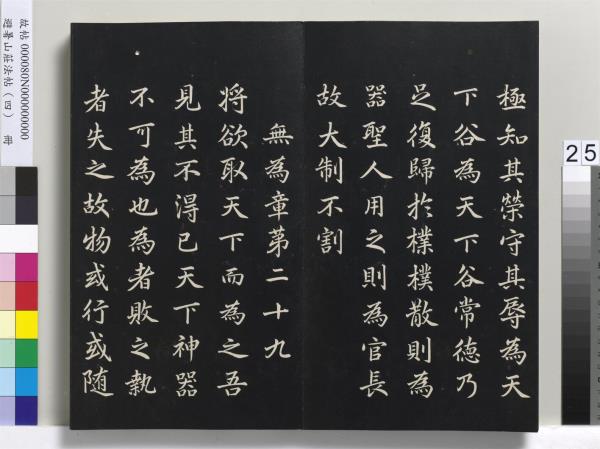 極知其榮守其辱為天
下谷為天下谷常德乃
足復歸於樸樸散則為
器聖人用之則為官長
故大制不割
無為章第二十九
將欲取天下而為之吾
見其不得已天下神器
不可為也為者敗之執
者失之故物或行或隨
故帖000080N000000000
避暑山莊法帖（四） 冊
25